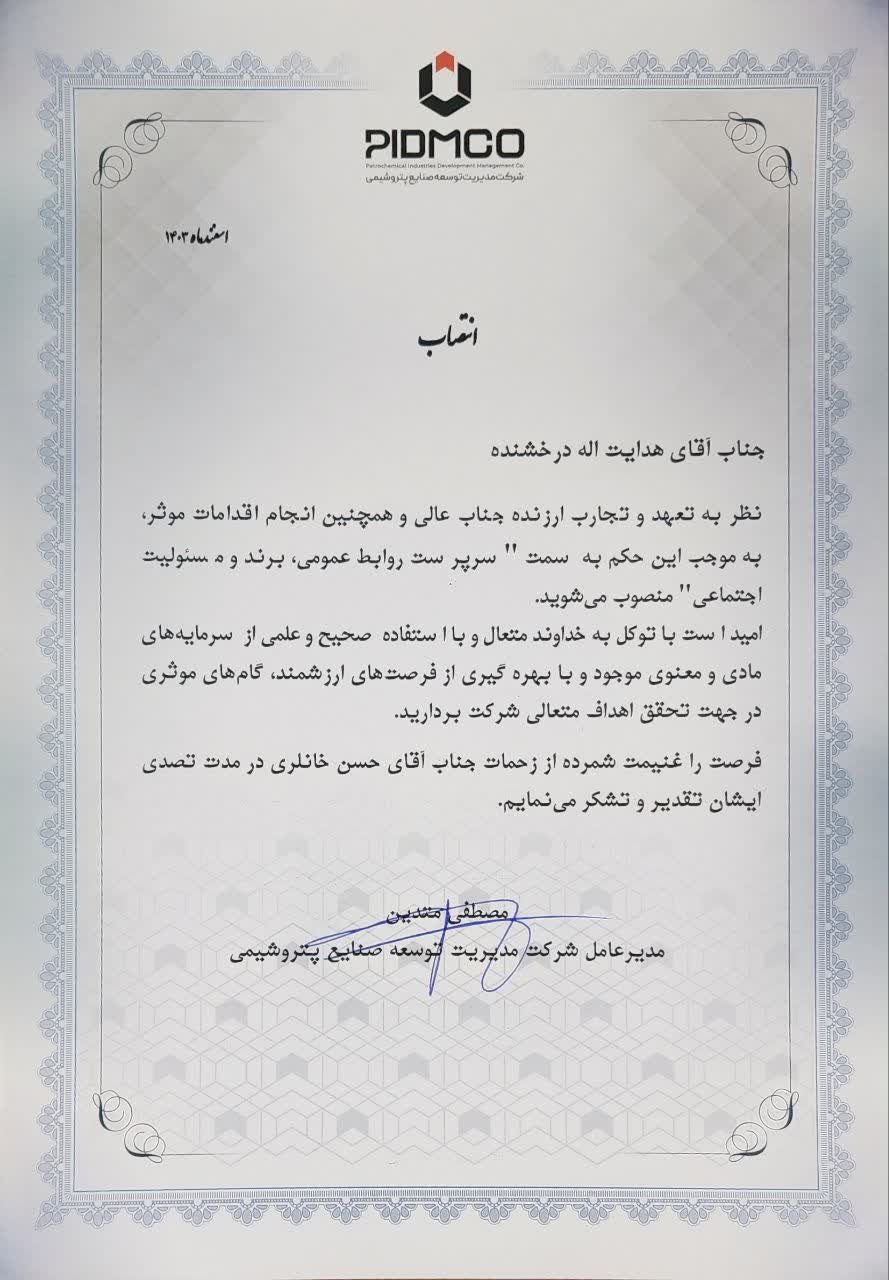 PIDMCO
Petrochemical Industries Development Management Co.
شرکت مدیریت توسعه صنایع پتروشیمی
اسفندماه ۱۴۰۳
انتصاب
جناب آقای هدایت اله درخشنده
نظر به تعهد و تجارب ارزنده جناب عالی و همچنین انجام اقدامات موثر،
به موجب این حکم به سمت " سرپرست روابط عمومی، برند و مسئولیت
اجتماعی" منصوب می‌شوید.
امید است با توکل به خداوند متعال و با استفاده صحیح و علمی از سرمایه‌های
مادی و معنوی موجود و با بهره گیری از فرصت‌های ارزشمند، گام‌های موثری
در جهت تحقق اهداف متعالی شرکت بردارید.
فرصت را غنیمت شمرده از زحمات جناب آقای حسن خانلری در مدت تصدی
ایشان تقدیر و تشکر می‌نمایم.
مصطفی متدین
مدیرعامل شرکت مدیریت توسعه صنایع پتروشیمی